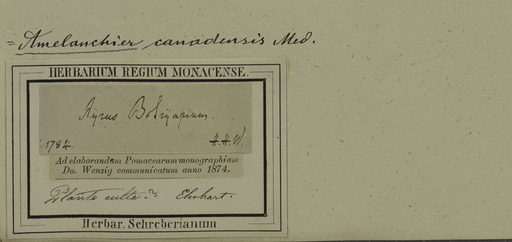 = Amelanchier canadensis Med.
HERBARIUM REGIUM MONACENSE.
Pyrus Botryapium.
1784. H. H. W.
Ad elaborandam Pomacearum monographiam
Do. Wenzig communicatum anno 1874.
Planta culta Ehrhart.
Herbar. Schreberianum